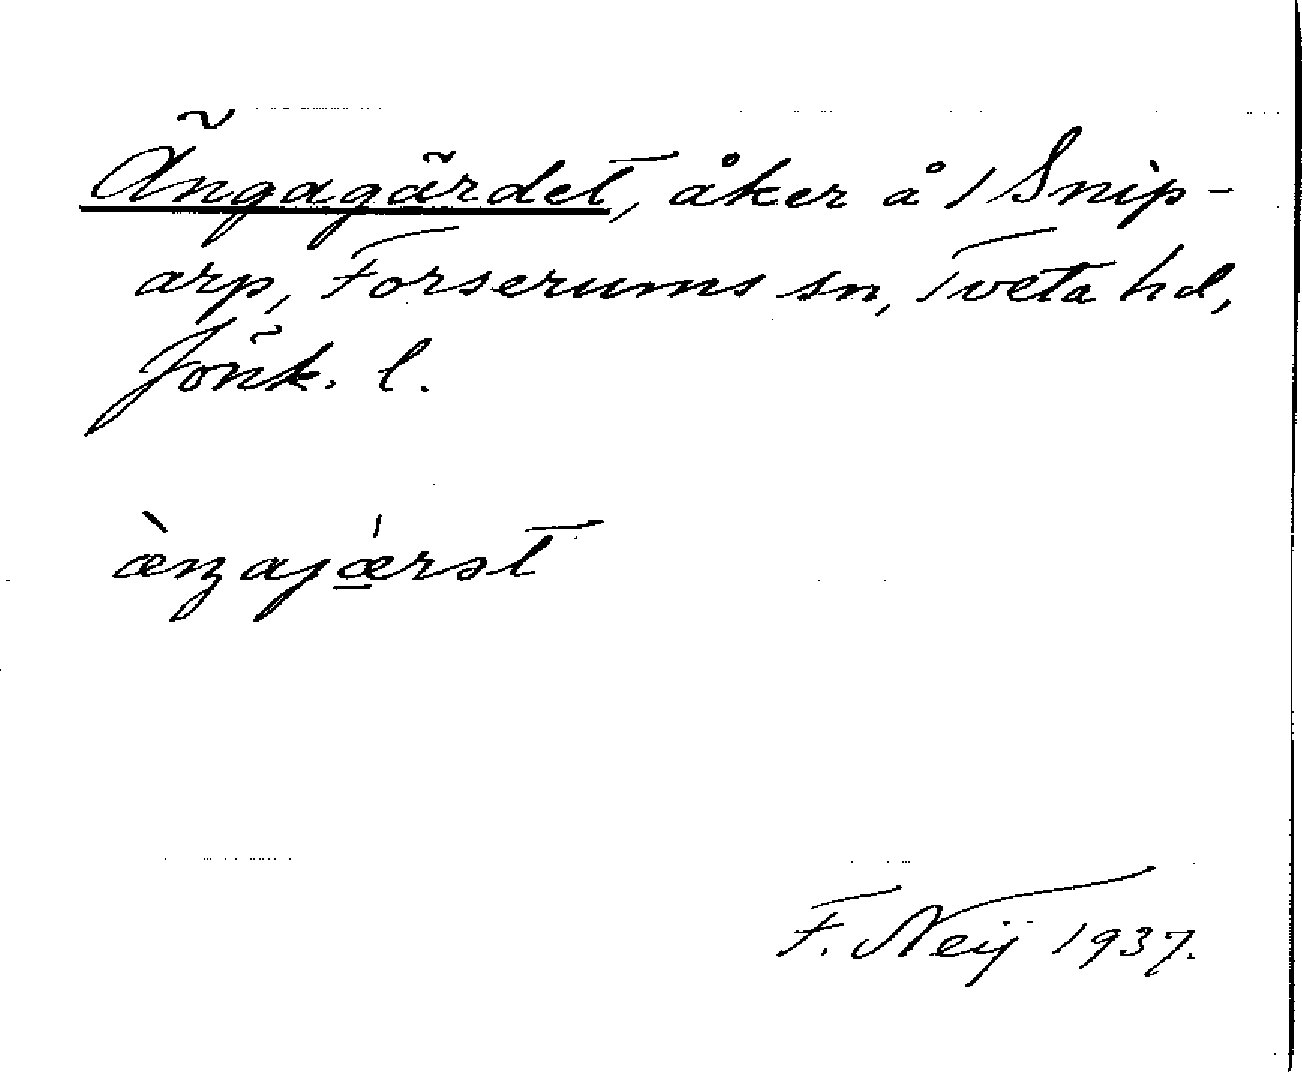 Ängagärdet, åker å 1 Snip-
arp, Forserums sn, Tveta hd,
Jönk. l.
æ̀ŋajǽ̲rət
F. Neij 1937.